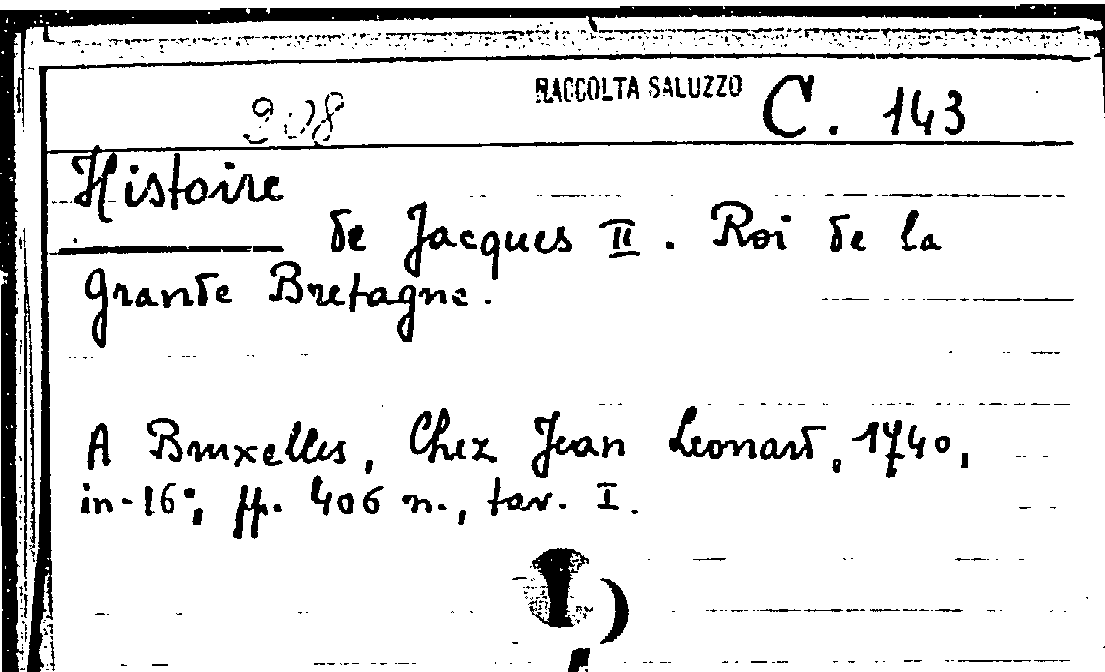 208 RACCOLTA SALUZZO C. 143
Histoire
de Jacques II. Roi de la
grande Bretagne.
A Bruxelles, Chez Jean Leonard, 1740,
in-16°, pp. 406 n., tav. I.